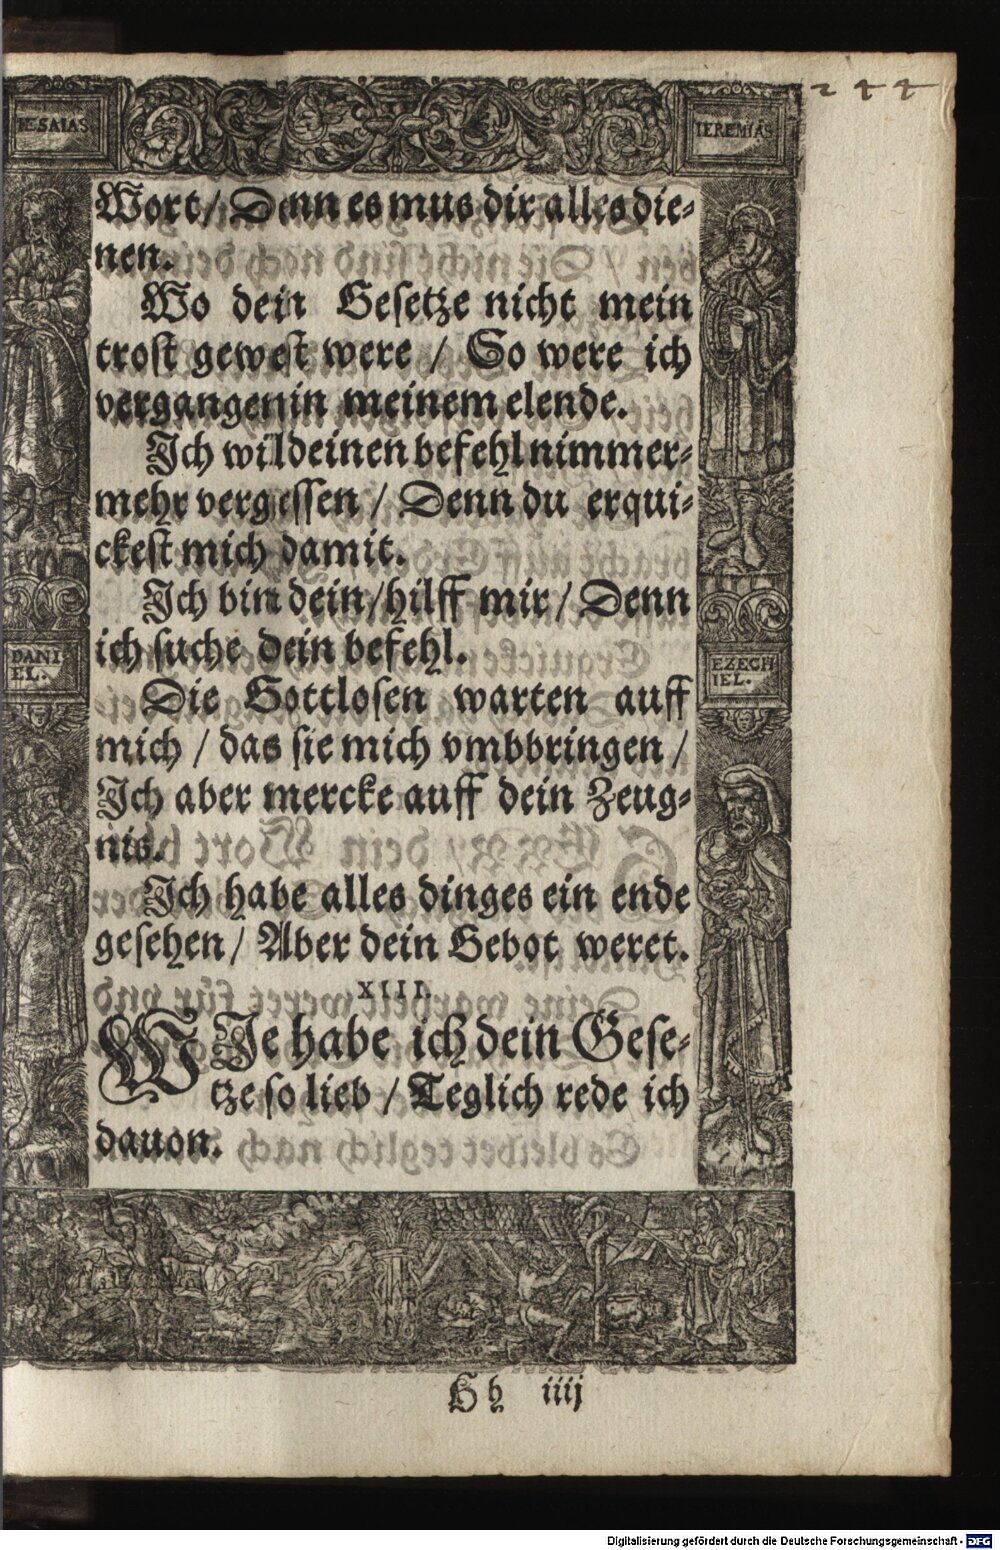 244
IESAIAS
IEREMIAS
Wort / Denn es mus dir alles die⸗
nen.
Wo dein Gesetze nicht mein
trost gewest were / So were ich
vergangen in meinem elende.
Ich wil deinen befehl nimmer⸗
mehr vergessen / Denn du erqui⸗
ckest mich damit.
Ich bin dein / hilff mir / Denn
ich suche dein befehl.
DANI
EL.
EZECH
IEL.
Die Gottlosen warten auff
mich / das sie mich vmbbringen /
Ich aber mercke auff dein Zeug⸗
nis.
Ich habe alles dinges ein ende
gesehen / Aber dein Gebot weret.
XIII.
WIe habe ich dein Gese⸗
tze so lieb / Teglich rede ich
dauon.
Hh iiij
Digitalisierung gefördert durch die Deutsche Forschungsgemeinschaft - DFG